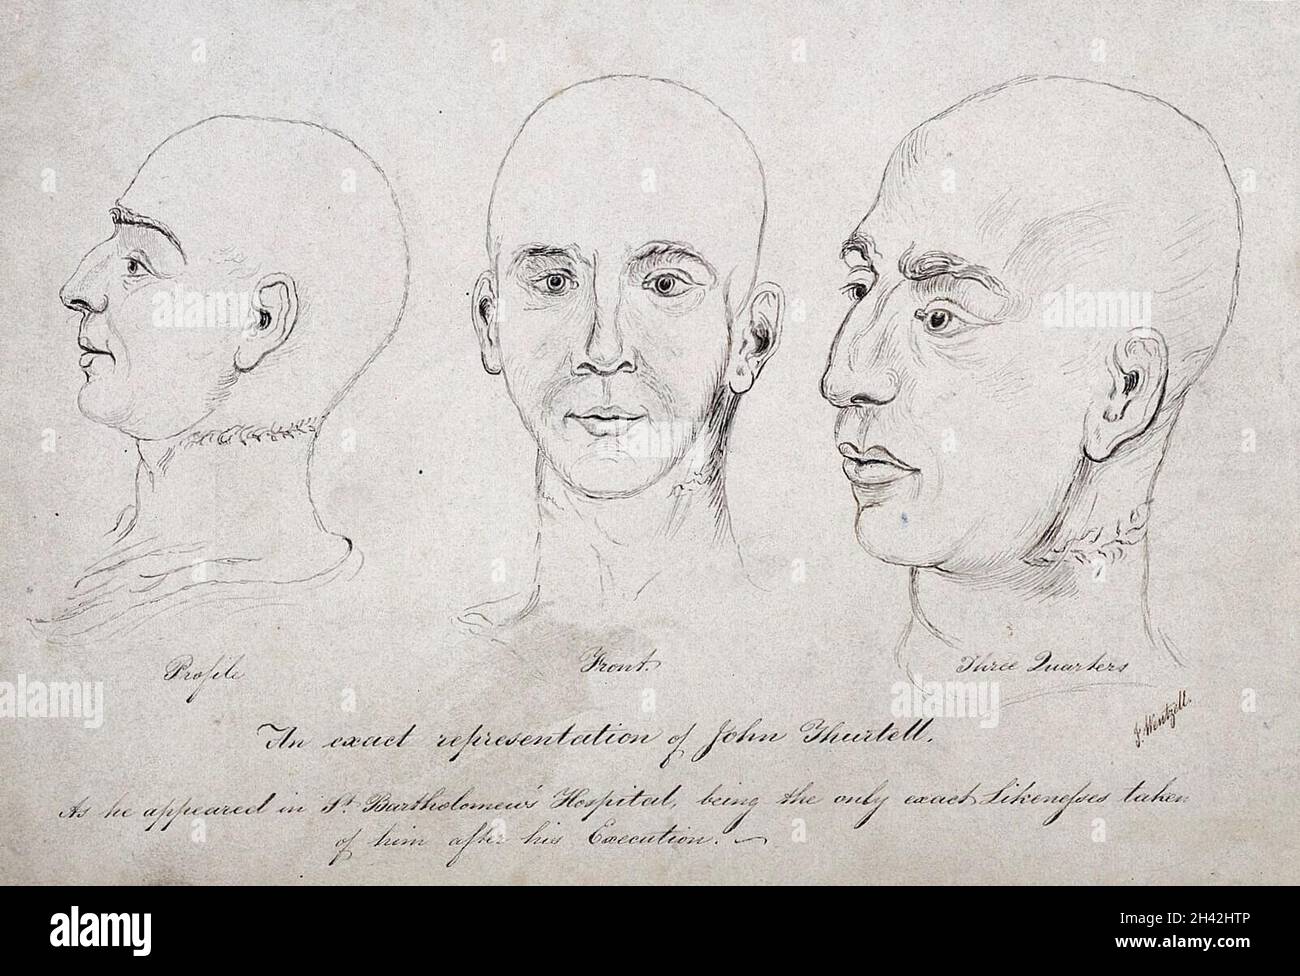 Profile
Front.
Three Quarters
J. Wentzell.
An exact representation of John Thurtell.
As he appeared in St. Bartholomew's Hospital, being the only exact Likenesses taken
of him after his Execution.
alamy
Image ID: 2H42HTP
www.alamy.com